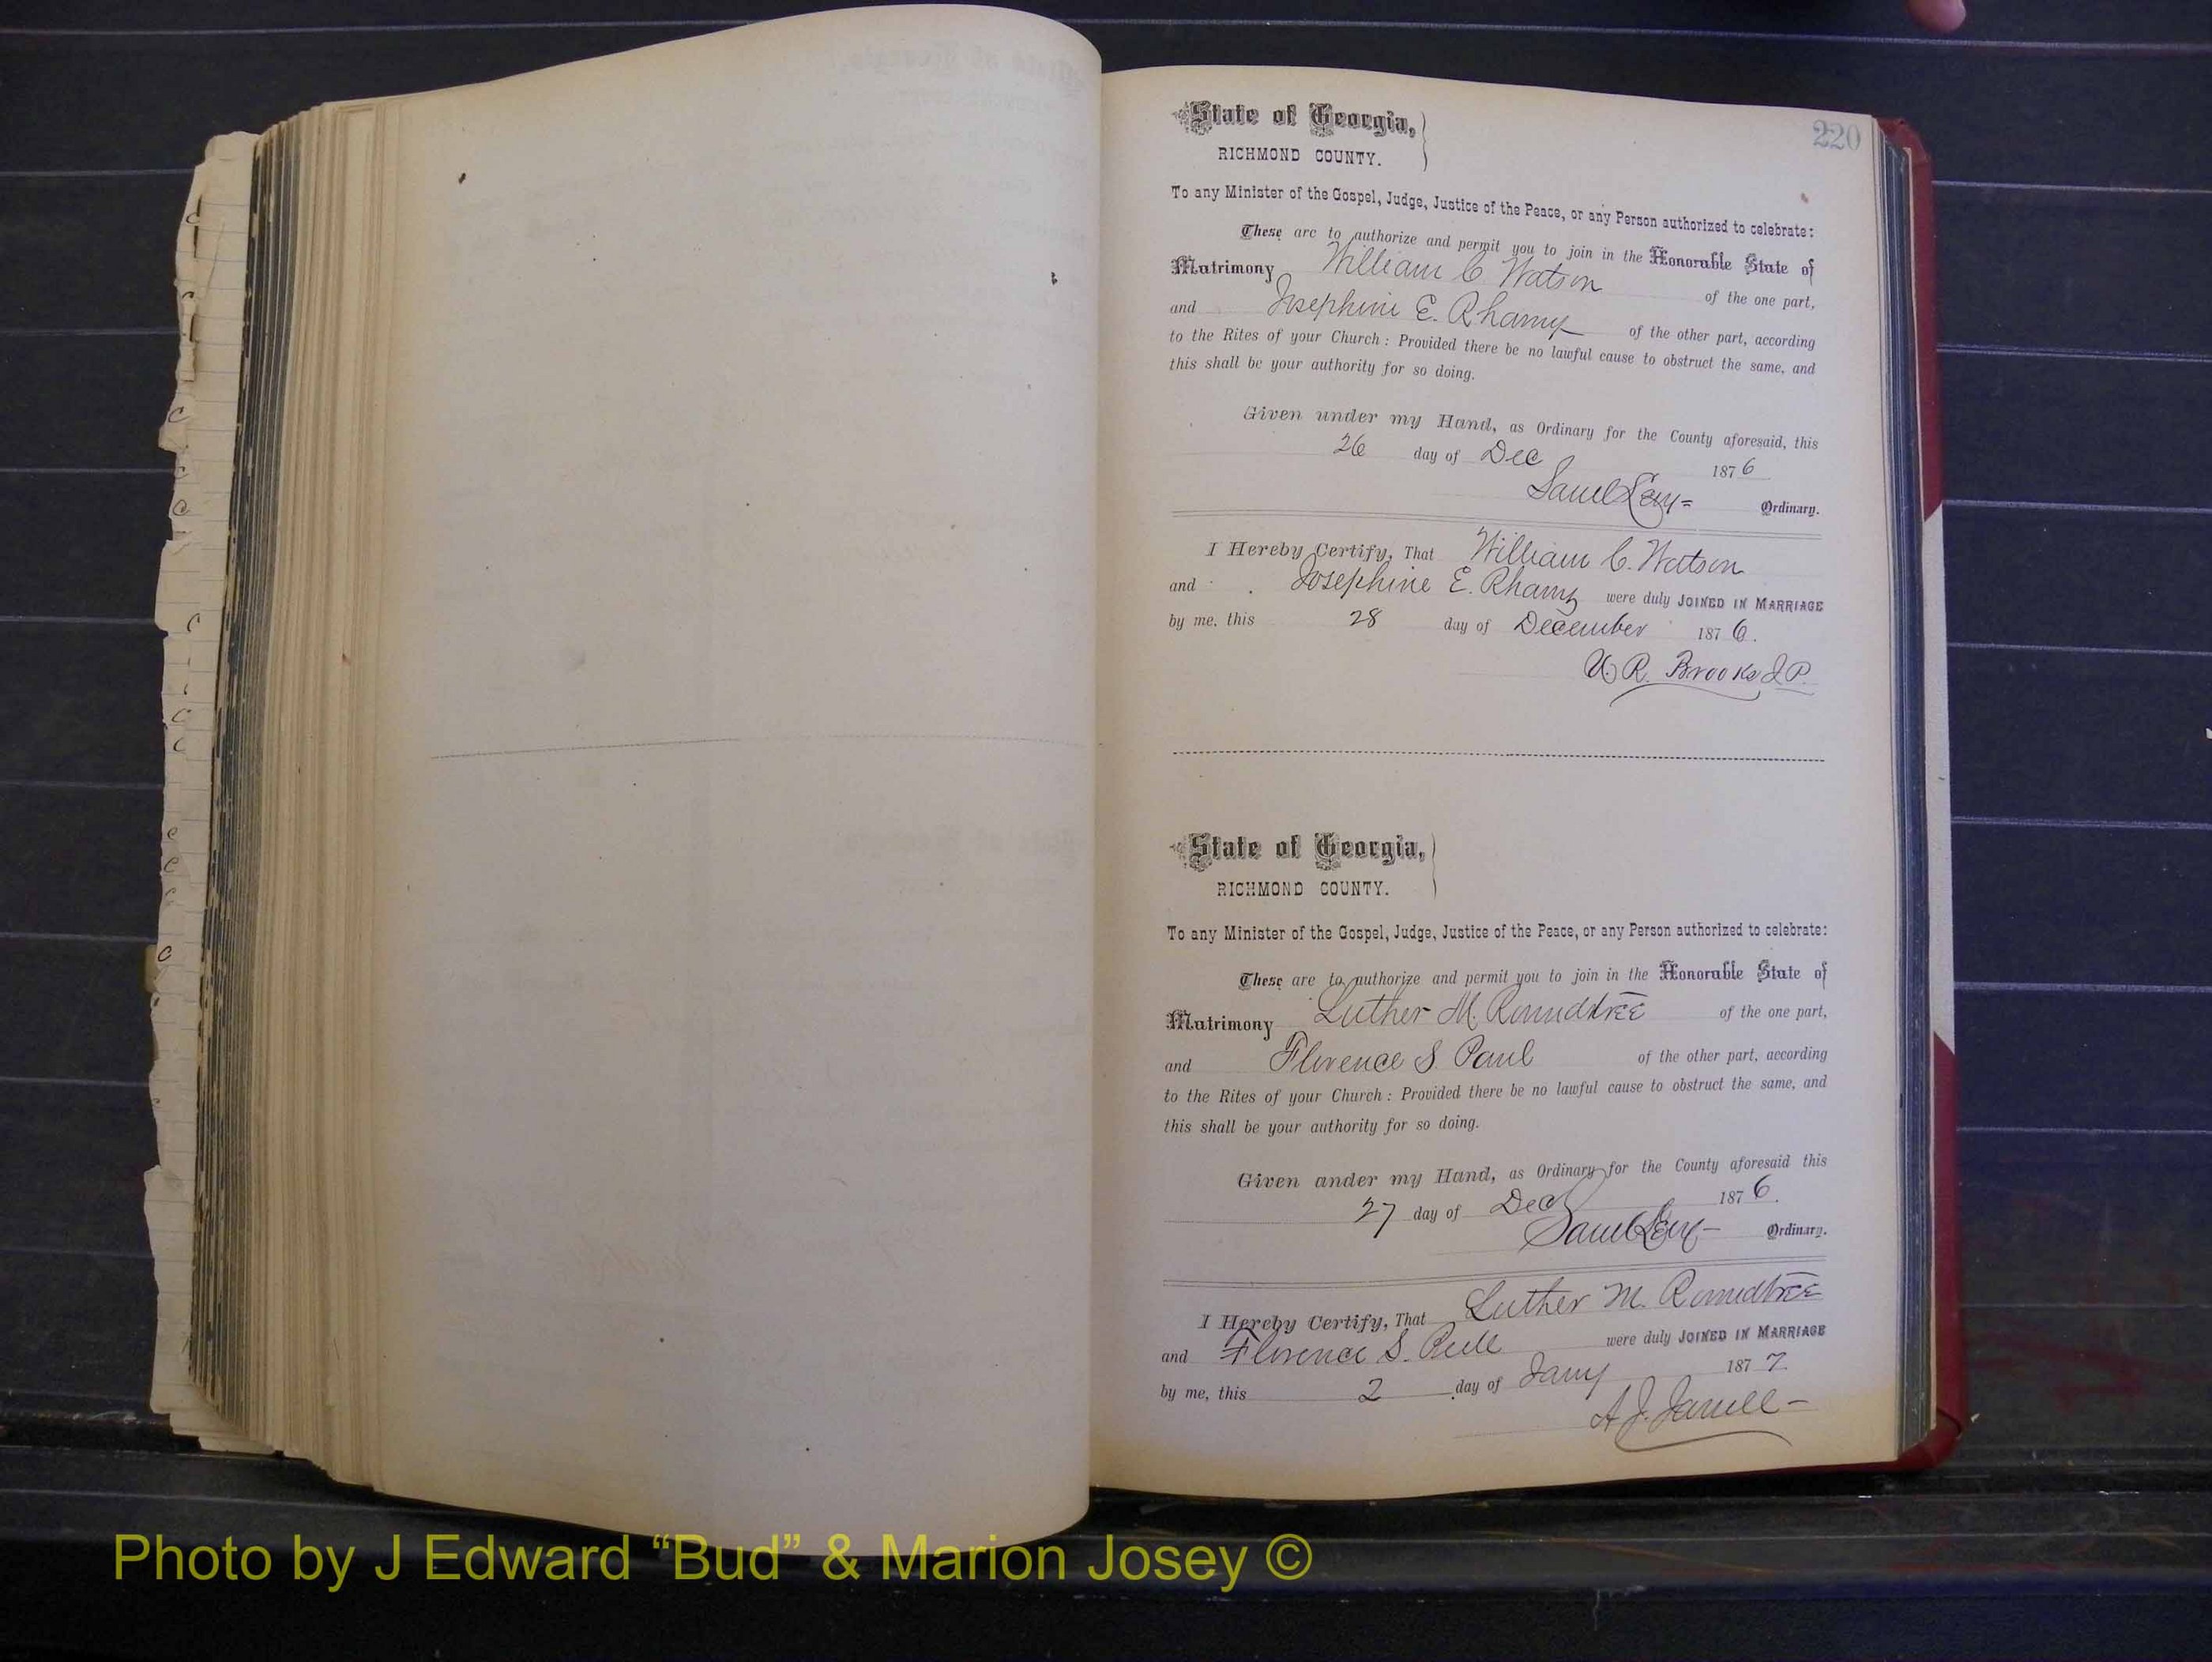 220
State of Georgia,
RICHMOND COUNTY.
To any Minister of the Gospel, Judge, Justice of the Peace, or any Person authorized to celebrate:
These are to authorize and permit you to join in the Honorable State of
Matrimony William C. Watson of the one part,
and Josephine E. Rhamy of the other part, according
to the Rites of your Church: Provided there be no lawful cause to obstruct the same, and
this shall be your authority for so doing.
Given under my Hand, as Ordinary for the County aforesaid, this
26 day of Dec 1876
Saml Levy Ordinary.
I Hereby Certify, That William C. Watson
and Josephine E. Rhamy were duly JOINED IN MARRIAGE
by me, this 28 day of December 1876.
R. Brooks J P.
State of Georgia,
RICHMOND COUNTY.
To any Minister of the Gospel, Judge, Justice of the Peace, or any Person authorized to celebrate:
These are to authorize and permit you to join in the Honorable State of
Matrimony Luther M. Roundtree of the one part,
and Florence S Paul of the other part, according
to the Rites of your Church: Provided there be no lawful cause to obstruct the same, and
this shall be your authority for so doing.
Given under my Hand, as Ordinary for the County aforesaid this
27 day of Dec 1876.
Saml Levy Ordinary.
I Hereby Certify, That Luther M. Roundtree
and Florence S. were duly JOINED IN MARRIAGE
by me, this 2 day of Jany 1877
A. J. Jarrell
Photo by J Edward “Bud” & Marion Josey ©